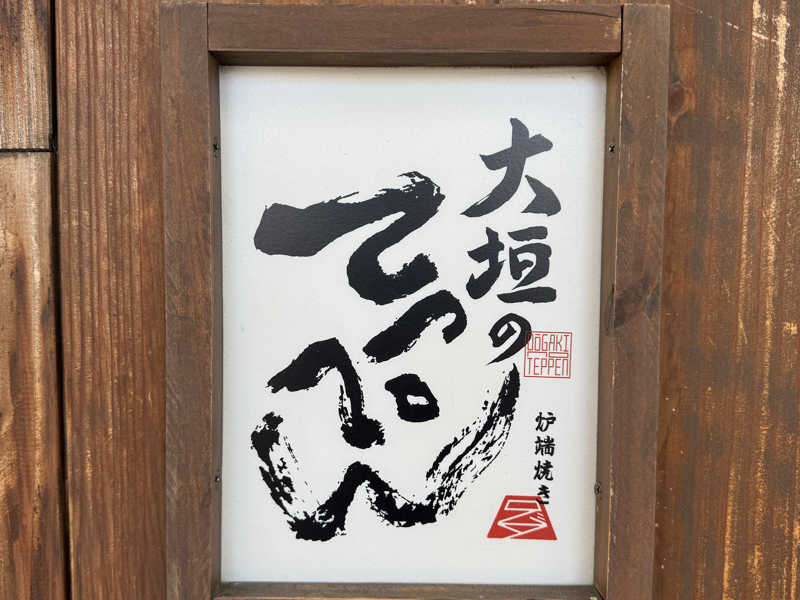 大垣の
てっぺん
OGAKI
TEPPEN
炉端焼き